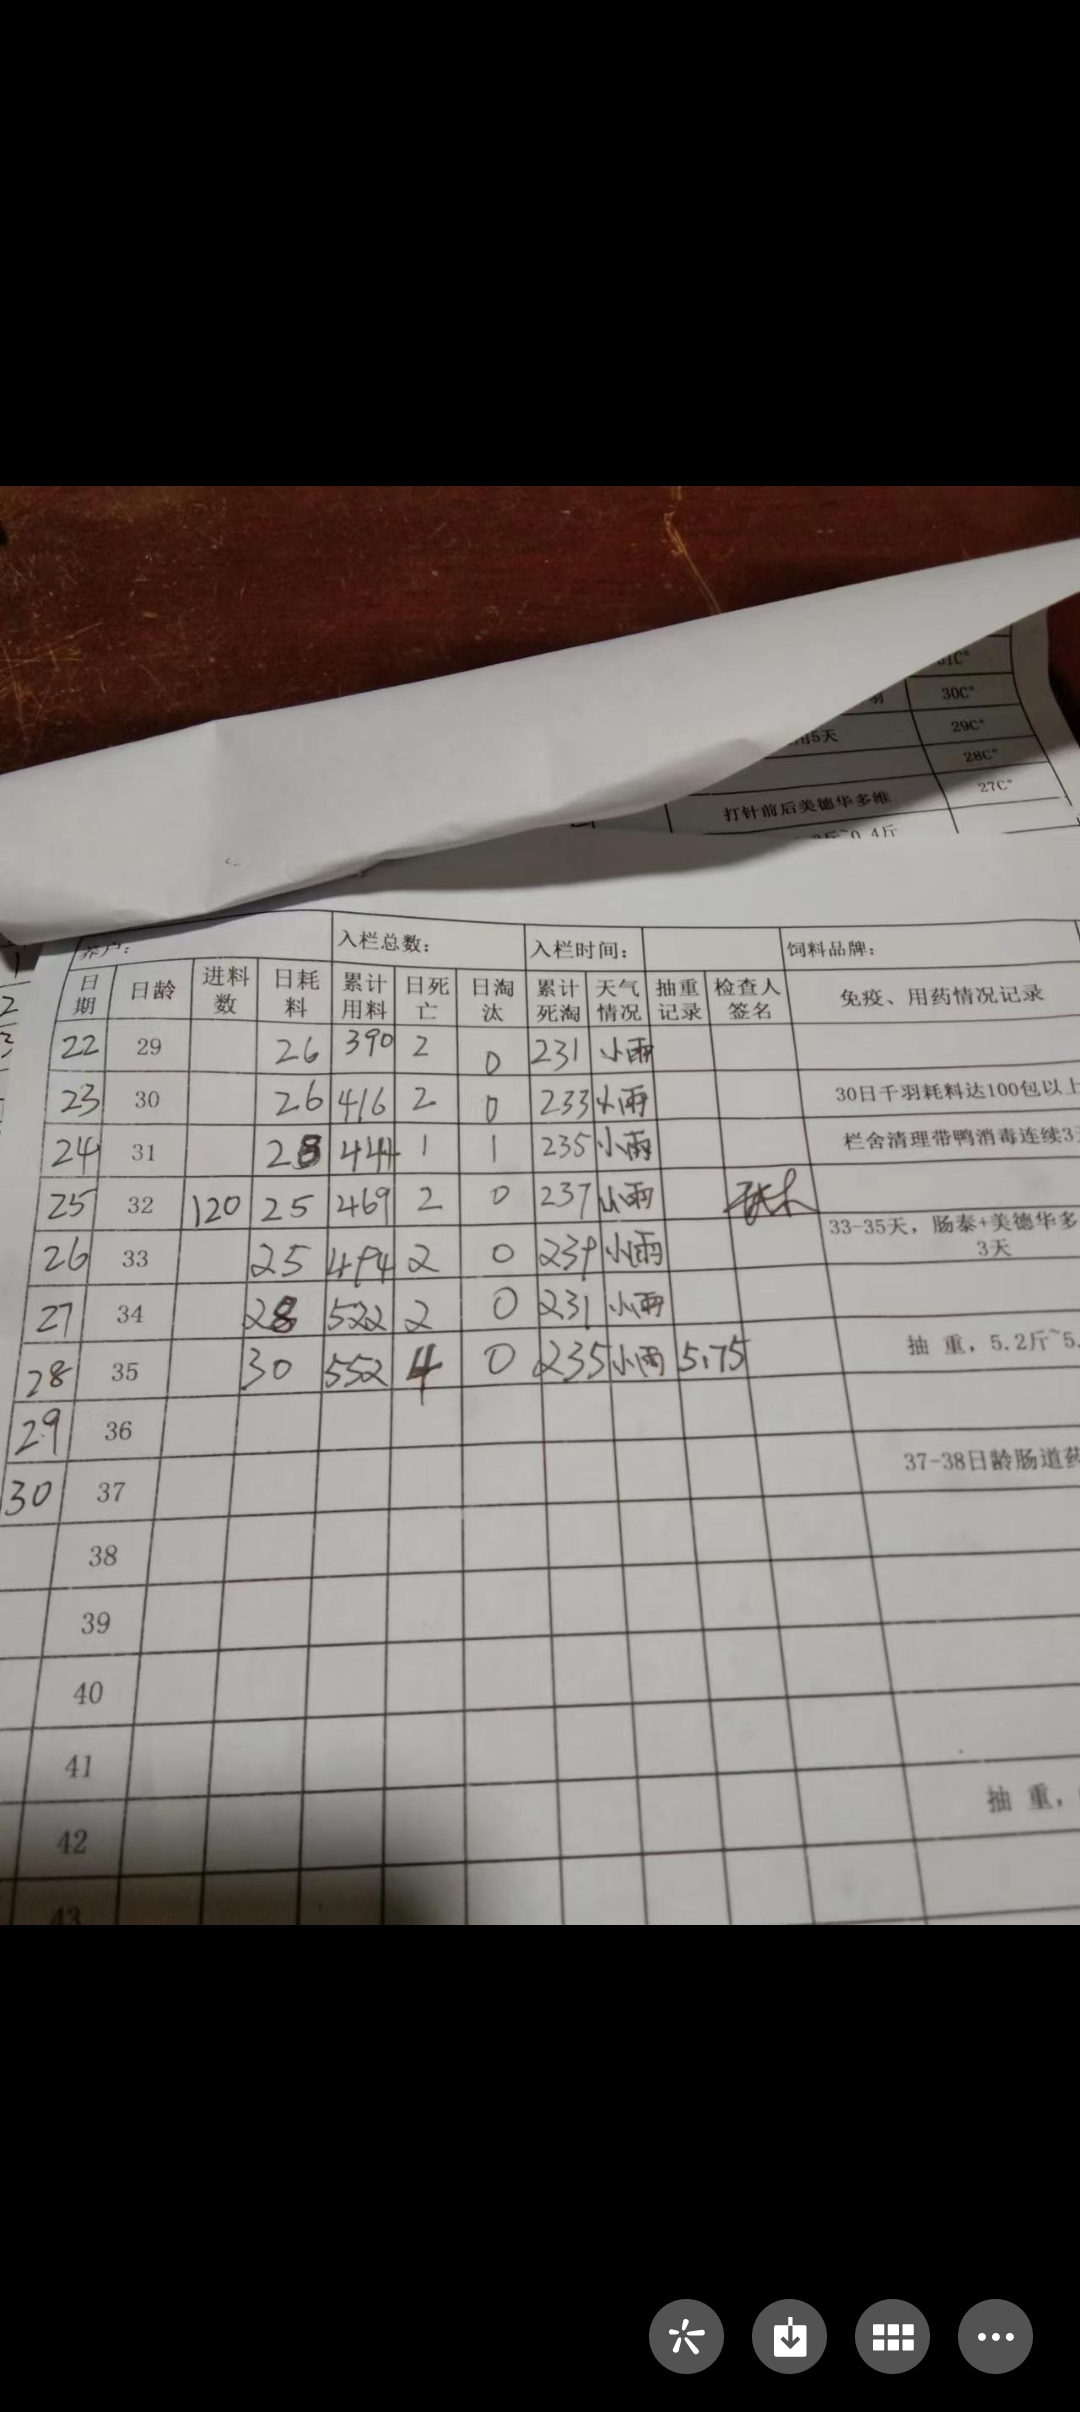 31C°
羽 30C°
用5天 29C°
28C°
打针前后美德华多维 27C°
0.4斤
养户： 入栏总数： 入栏时间： 饲料品牌：
日期 日龄 进料数 日耗料 累计用料 日死亡 日淘汰 累计死淘 天气情况 抽重记录 检查人签名 免疫、用药情况记录
22 29 26 390 2 0 231 小雨
23 30 26 416 2 0 233 小雨 30日千羽耗料达100包以上
24 31 28 444 1 1 235 小雨 栏舍清理带鸭消毒连续3
25 32 120 25 469 2 0 237 小雨
26 33 25 494 2 0 239 小雨 33-35天，肠泰+美德华多
3天
27 34 28 522 2 0 231 小雨
28 35 30 552 4 0 235 小雨 5.75 抽 重，5.2斤~5.
29 36
30 37 37-38日龄肠道药
38
39
40
41
42 抽 重，
43